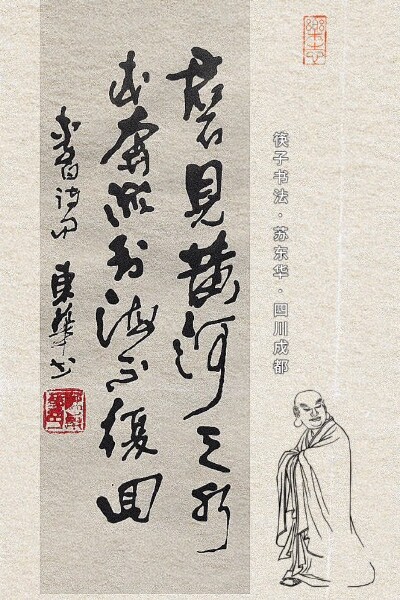 筷子书法·苏东华·四川成都
君見黄河之水
奔流到海不復回
李白诗句 東華书